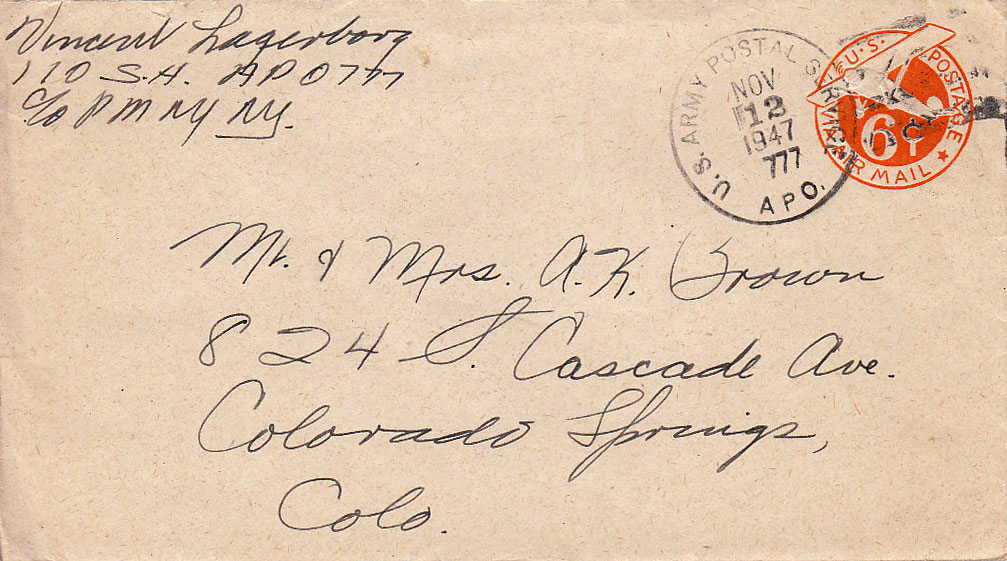 Vincent Lagerborg
110 S.H. APO 777
c/o PM NY NY.
U.S. ARMY POSTAL SERVICE
NOV
12
1947
777
APO.
U.S. POSTAGE
6¢
AIR MAIL
Mr. & Mrs. A.K. Brown
824 S. Cascade Ave.
Colorado Springs,
Colo.